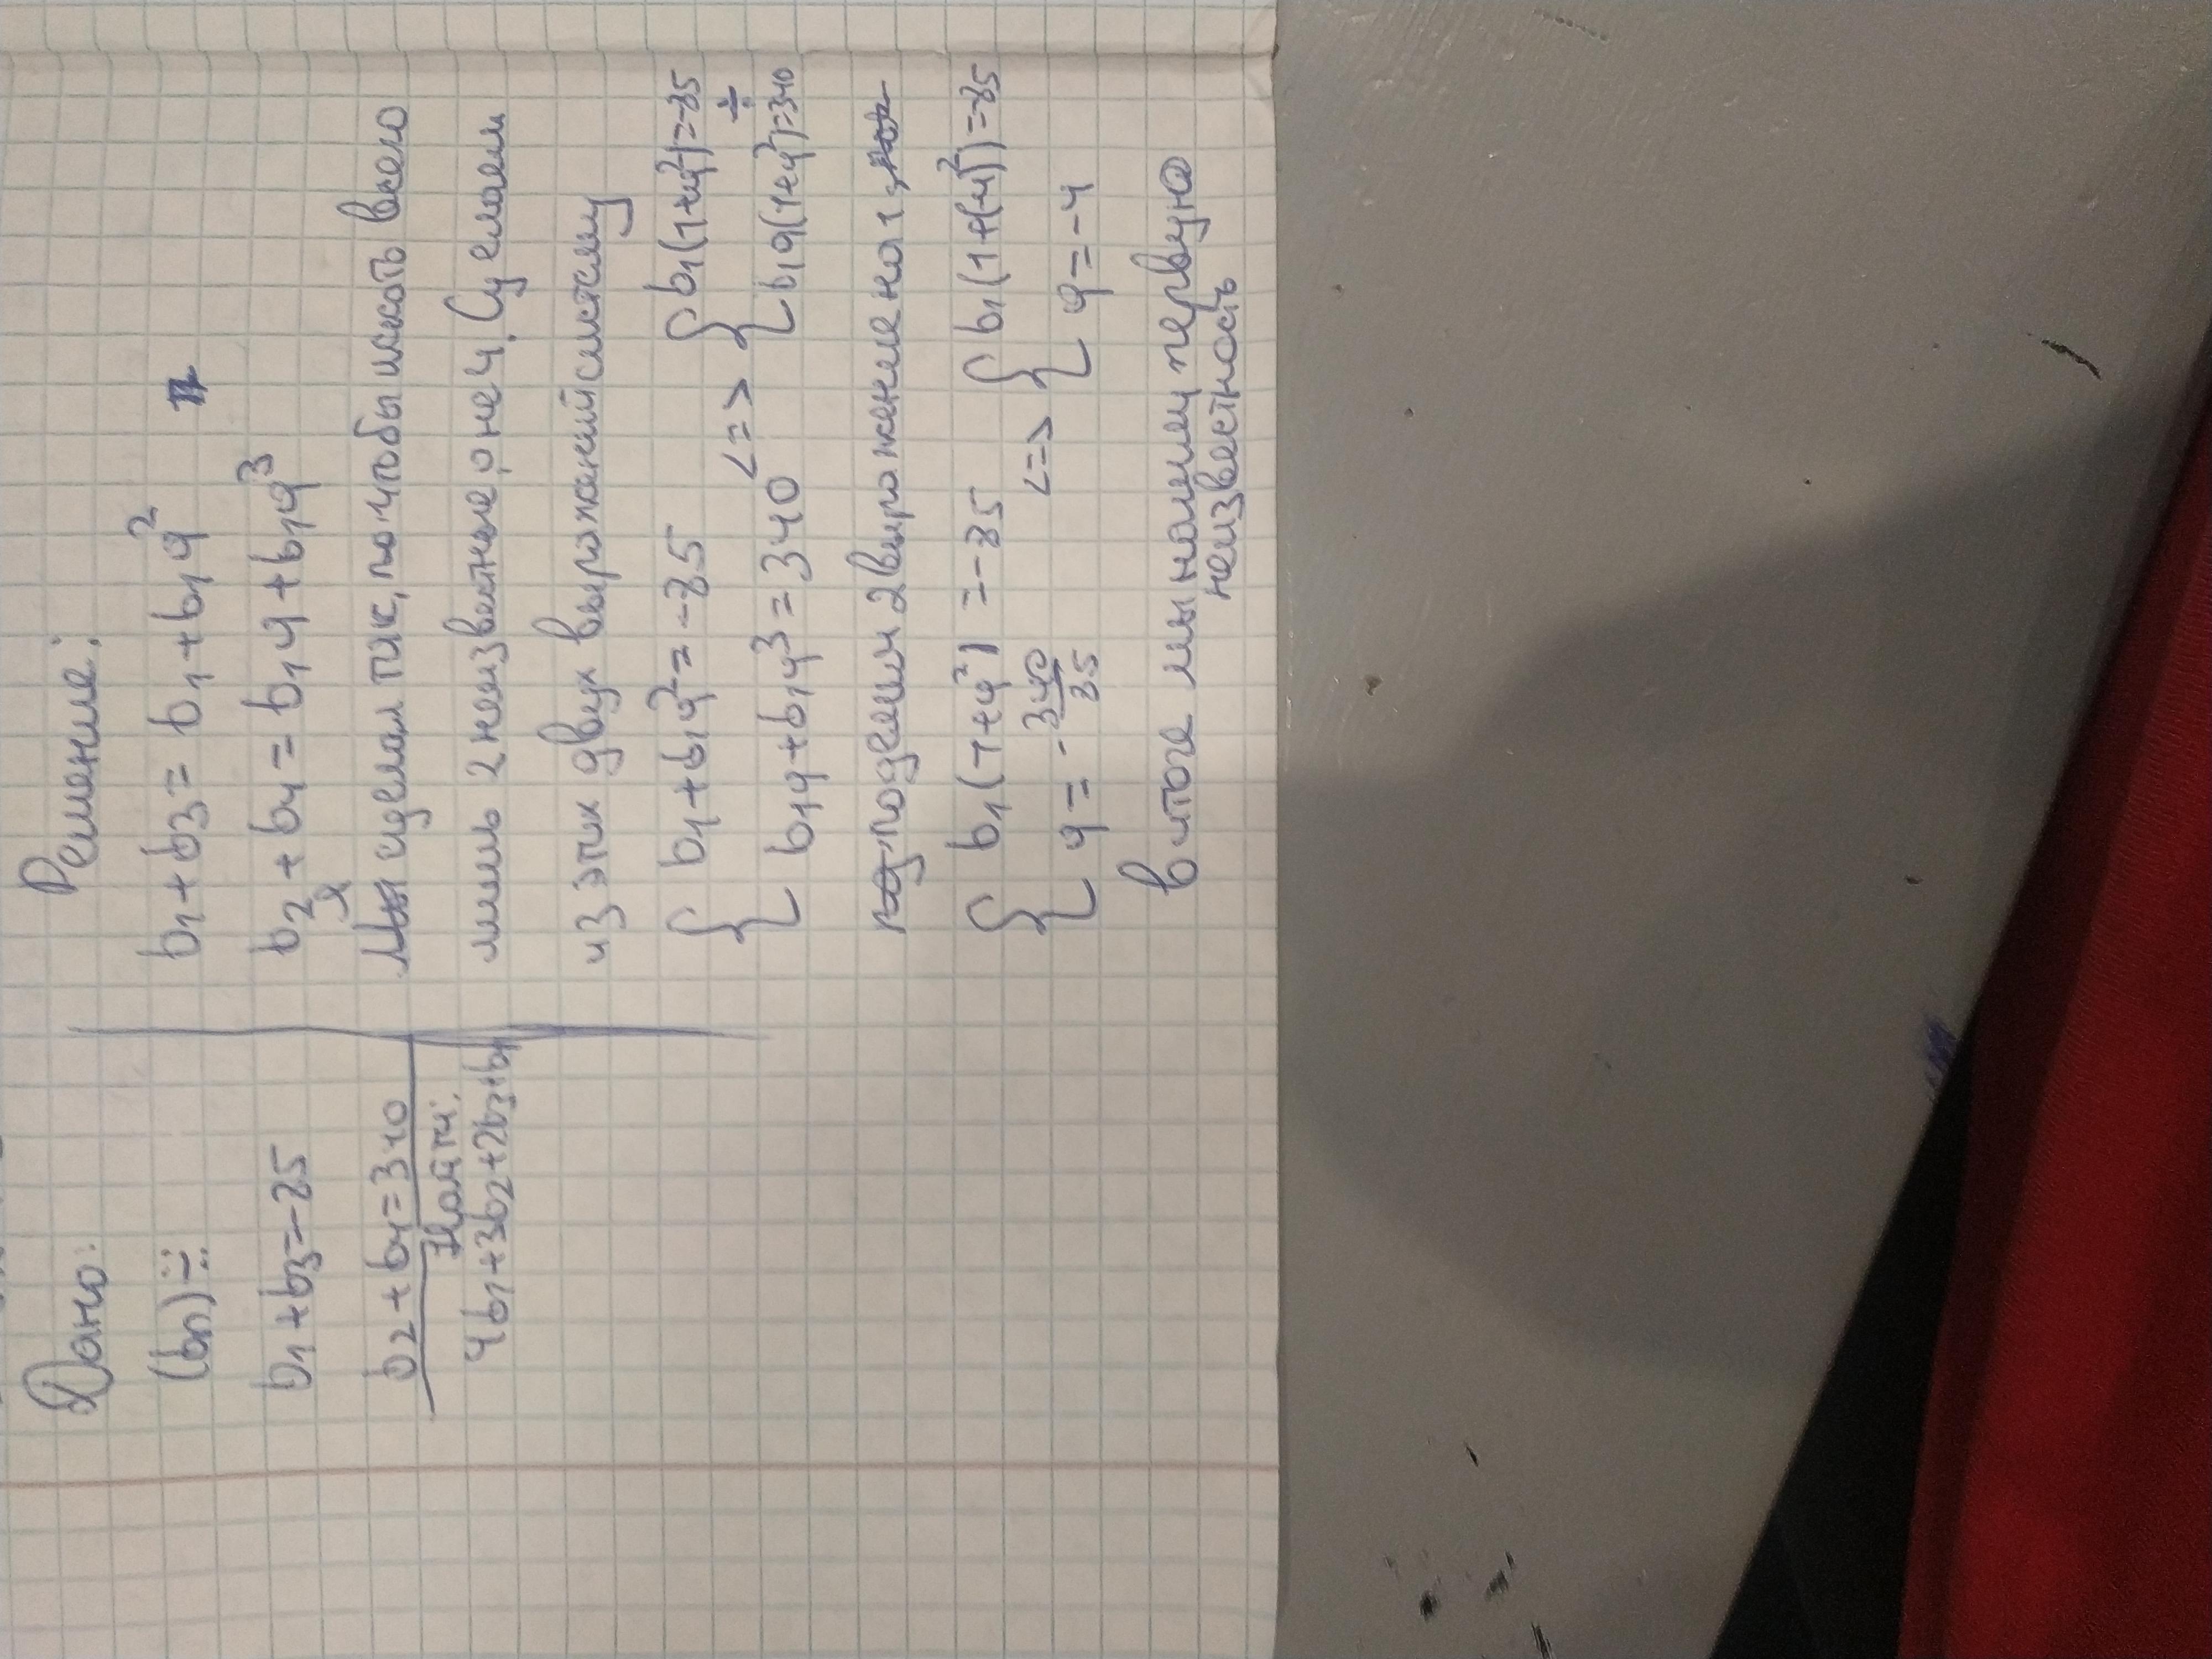 Дано:
(bn) ∺
b1+b3=-85
b2+b4=340
Найти:
4b1+3b2+2b3+b4
Решение:
b1+b3=b1+b1q²
b2+b4=b1q+b1q³
я сделал так, чтобы искать всего
лишь 2 неизвестные, а не 4. Сделаем
из этих двух выражений систему
{ b1+b1q²=-85 <=> { b1(1+q²)=-85
{ b1q+b1q³=340 { b1q(1+q²)=340 ÷
поделим 2 выражение на 1
{ b1(1+q²)=-85 <=> { b1(1+(-4)²)=-85
{ q=-340/85 { q=-4
в итоге мы нашли первую
неизвестность